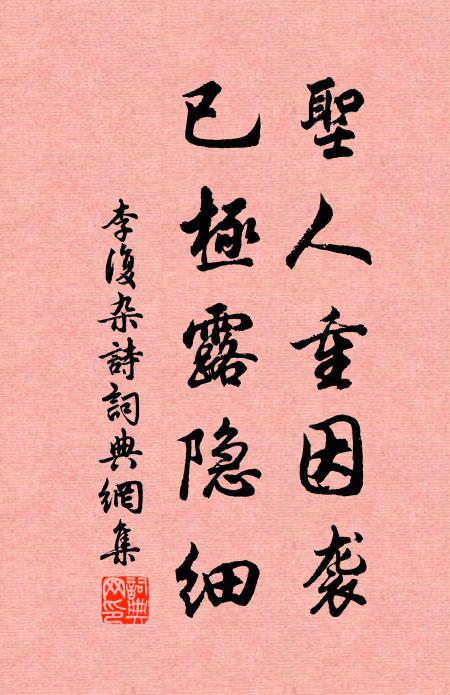 聖人重因袭
已極露隐細
李復杂詩詞典網集
詞典網印